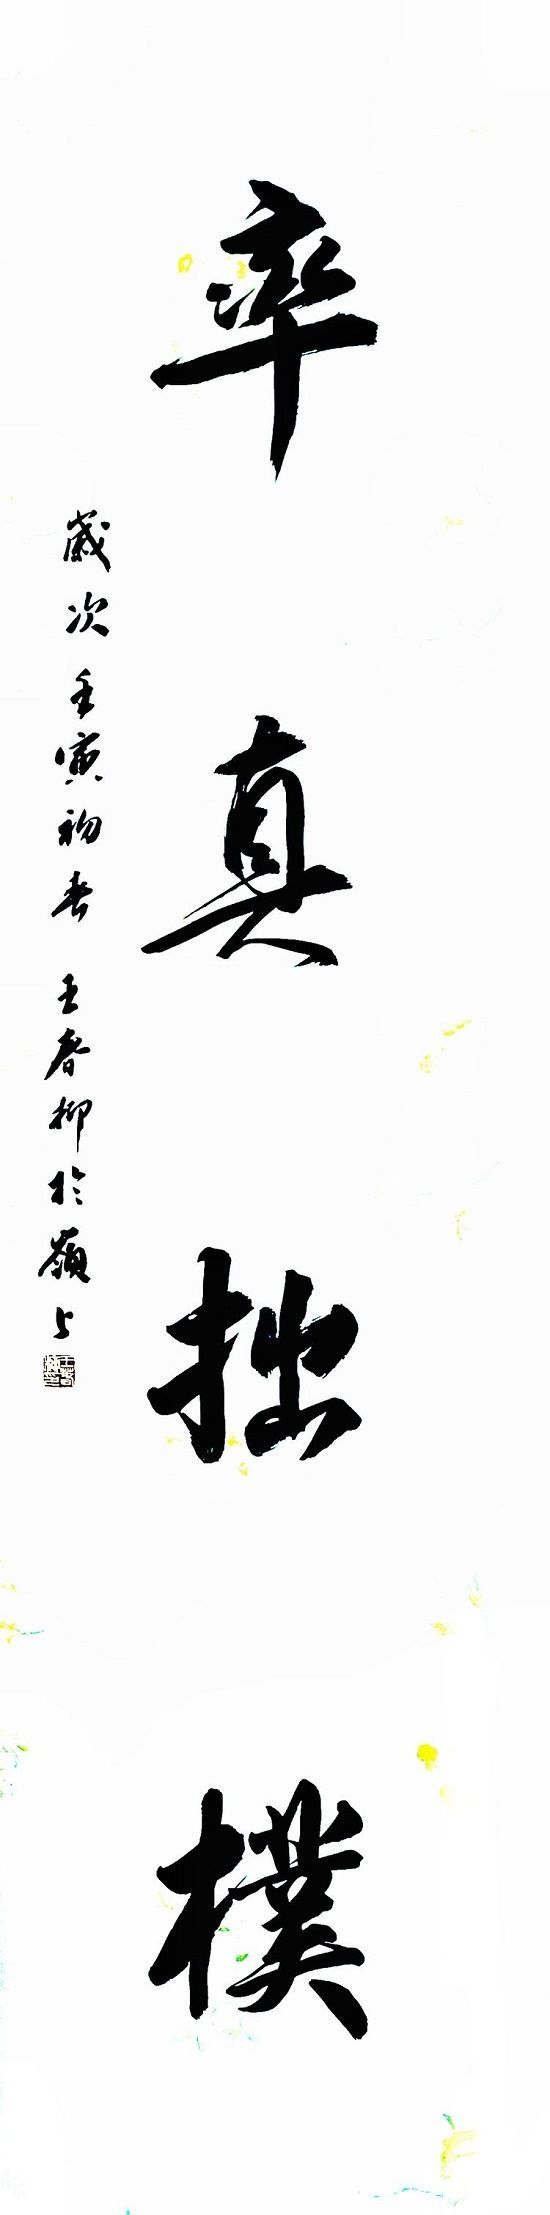 率真拙樸
歲次壬寅初春 王春柳於嶺上